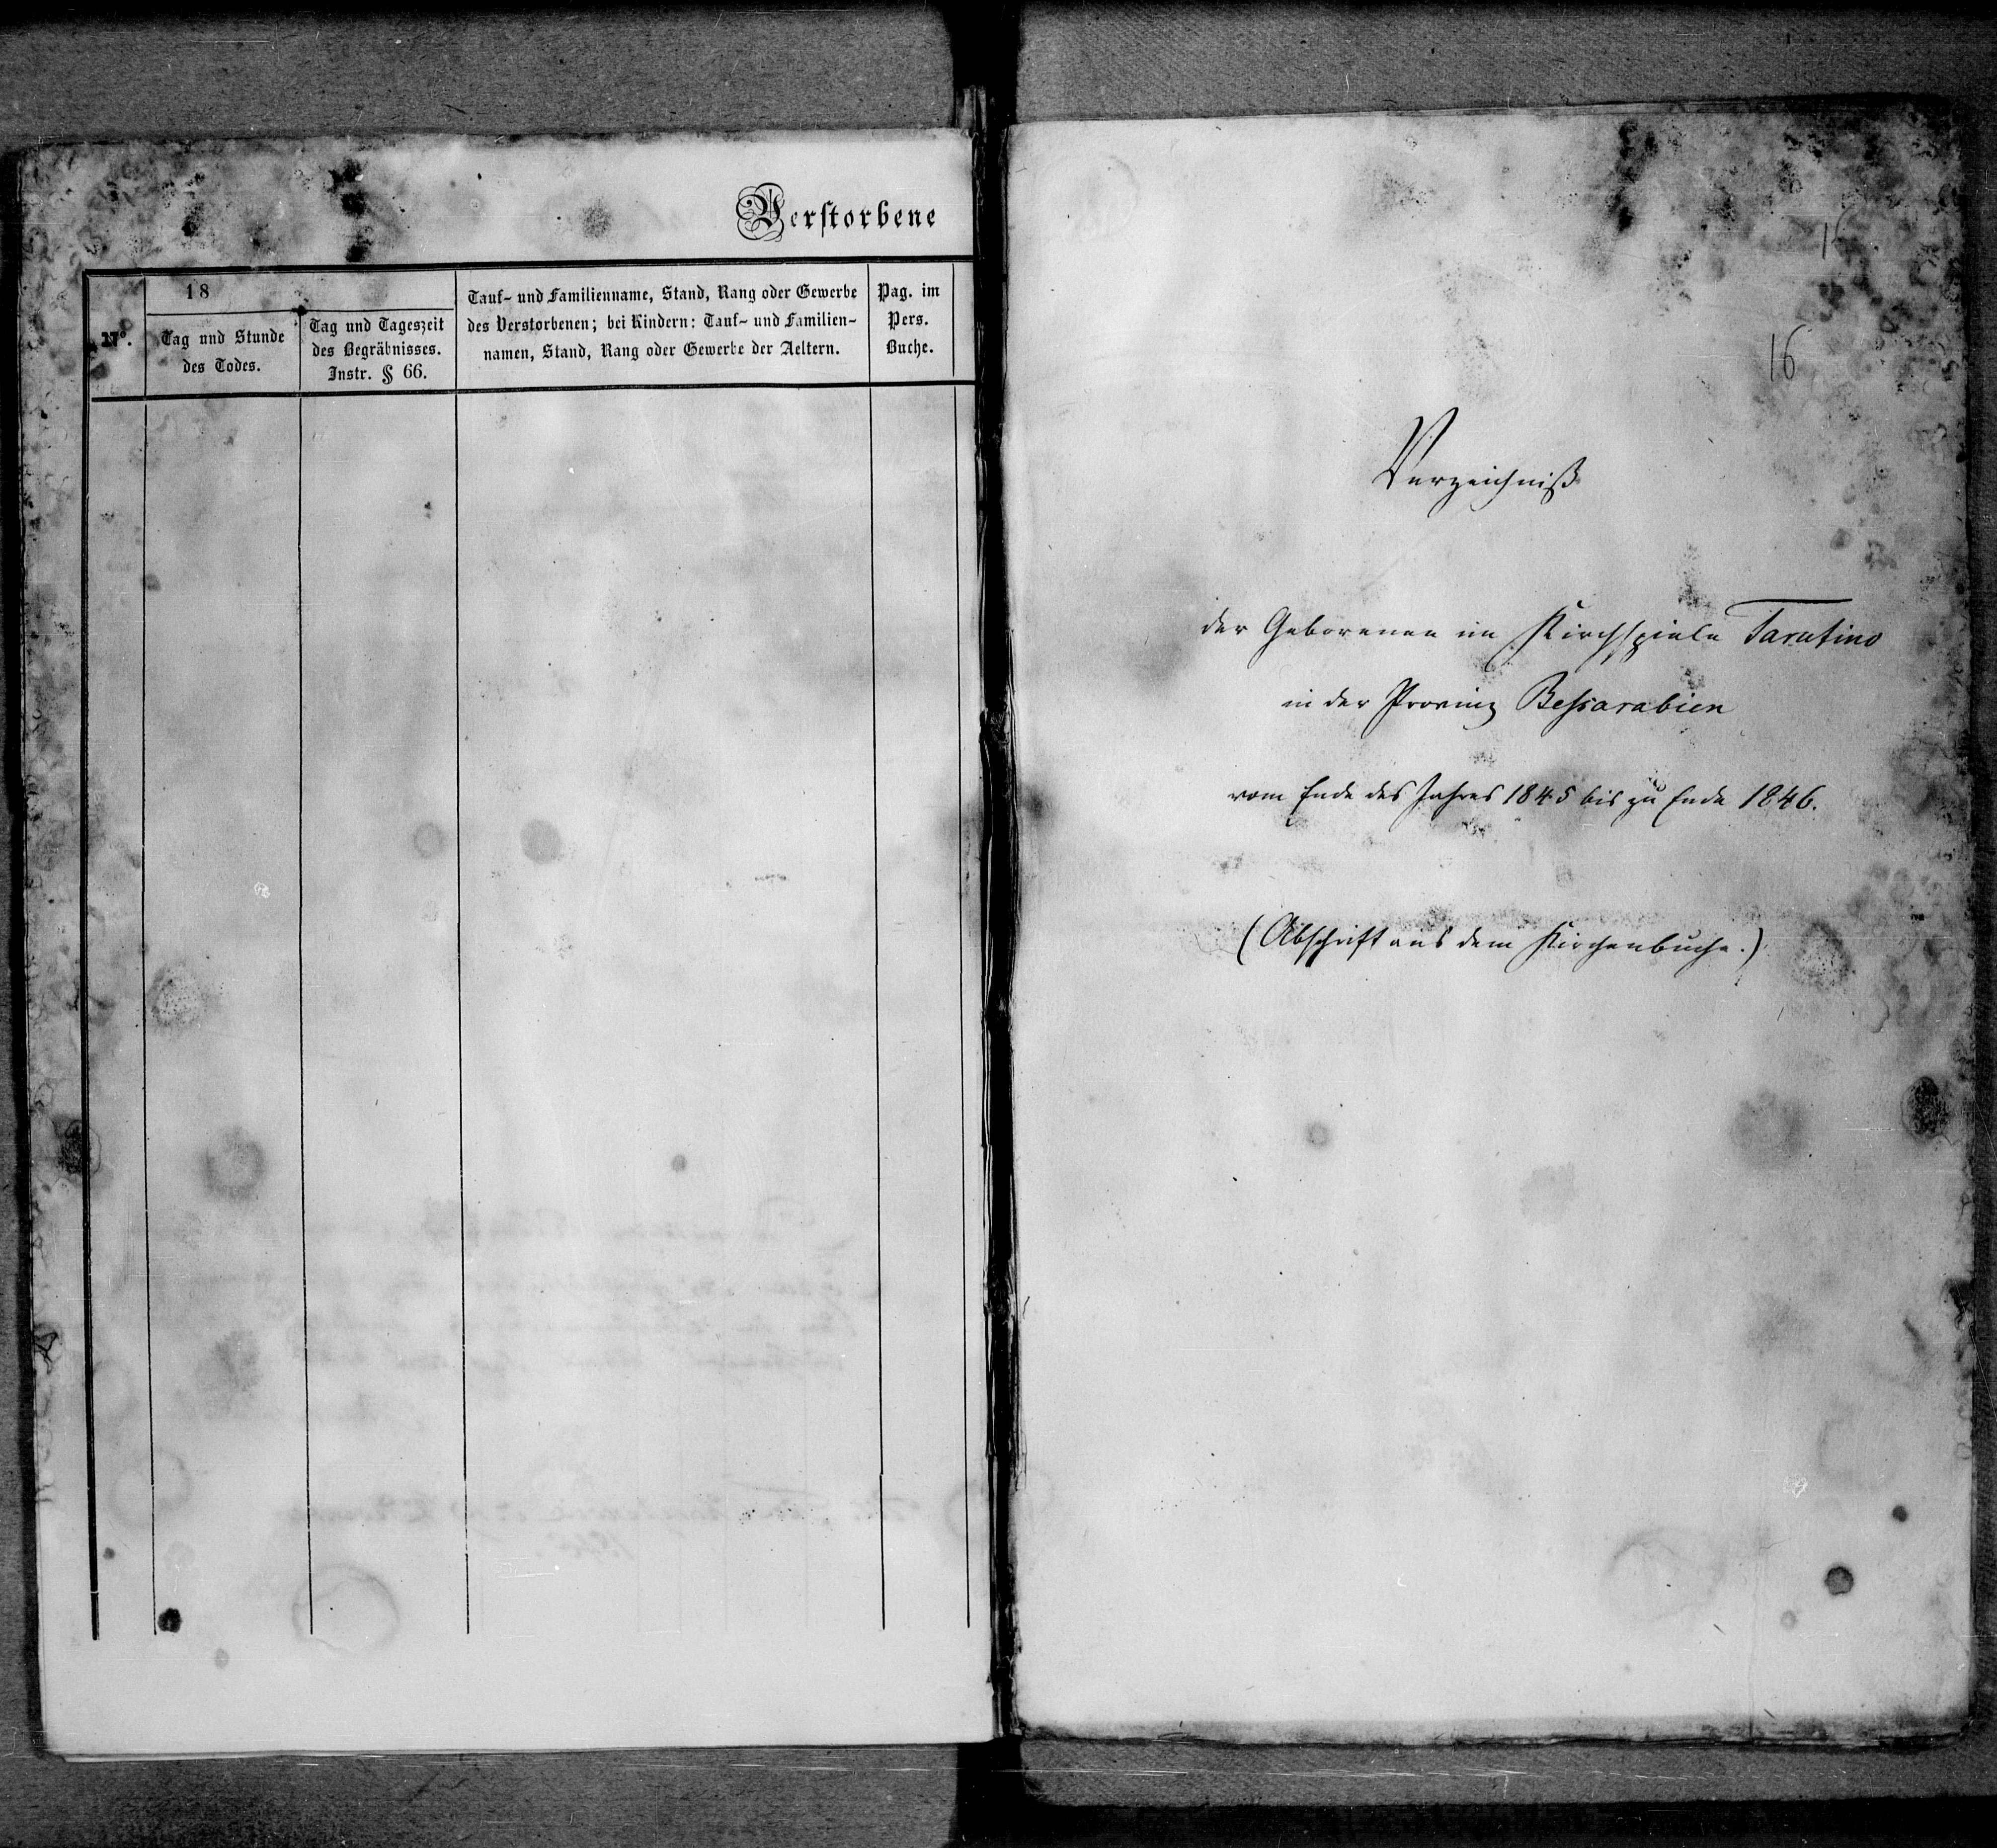 Verstorbene
N°.
18
Tag und Stunde
des Todes.
Tag und Tageszeit
des Begräbnisses.
Instr. § 66.
Tauf- und Familienname, Stand, Rang oder Gewerbe
des Verstorbenen; bei Kindern: Tauf- und Familien-
namen, Stand, Rang oder Gewerbe der Aeltern.
Pag. im
Pers.
Buche.
16
16
Verzeichniß
der Geborenen im Kirchspiele Tarutino
in der Provinz Bessarabien
vom Ende des Jahres 1845 bis zu Ende 1846.
(Abschrift aus dem Kirchenbuche.)